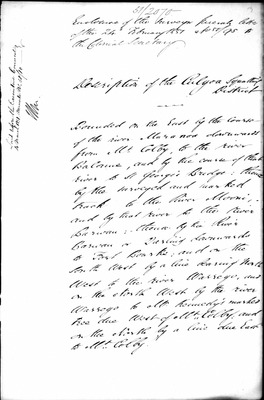 51/2075
Enclosure of the Surveyor General's letter
of the 24 February 1851 No 51/95 to
the Colonial Secretary
Description of the Culgoa Squatting
District
Bounded on the East by the Course
of the river Maranoa downwards
from Mt. Colby, to the river
Balonne, and by the course of that
river to St George's Bridge; thence
by the surveyed and marked
track to the River Mooni,
and by that river to the River
Barwan; thence by the River
Barwan or Darling downwards
to Fort Bourke; and on the
South West by a line bearing North
West to the river Warrego, and
on the North West by the river
Warrego to Mr Kennedy's marked
tree due West of Mt. Colby, and
on the North by a line due East
to Mt. Colby.